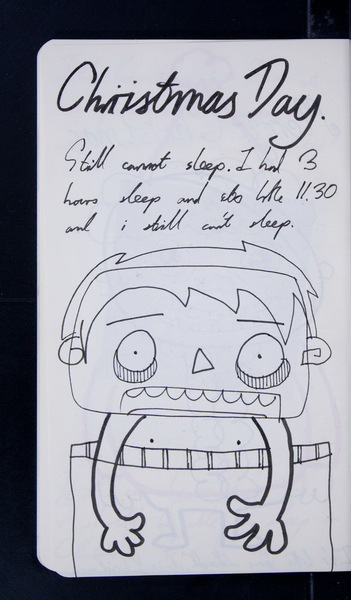 Christmas Day.
Still cannot sleep. I had 3
hours sleep and its like 11.30
and i still can't sleep.